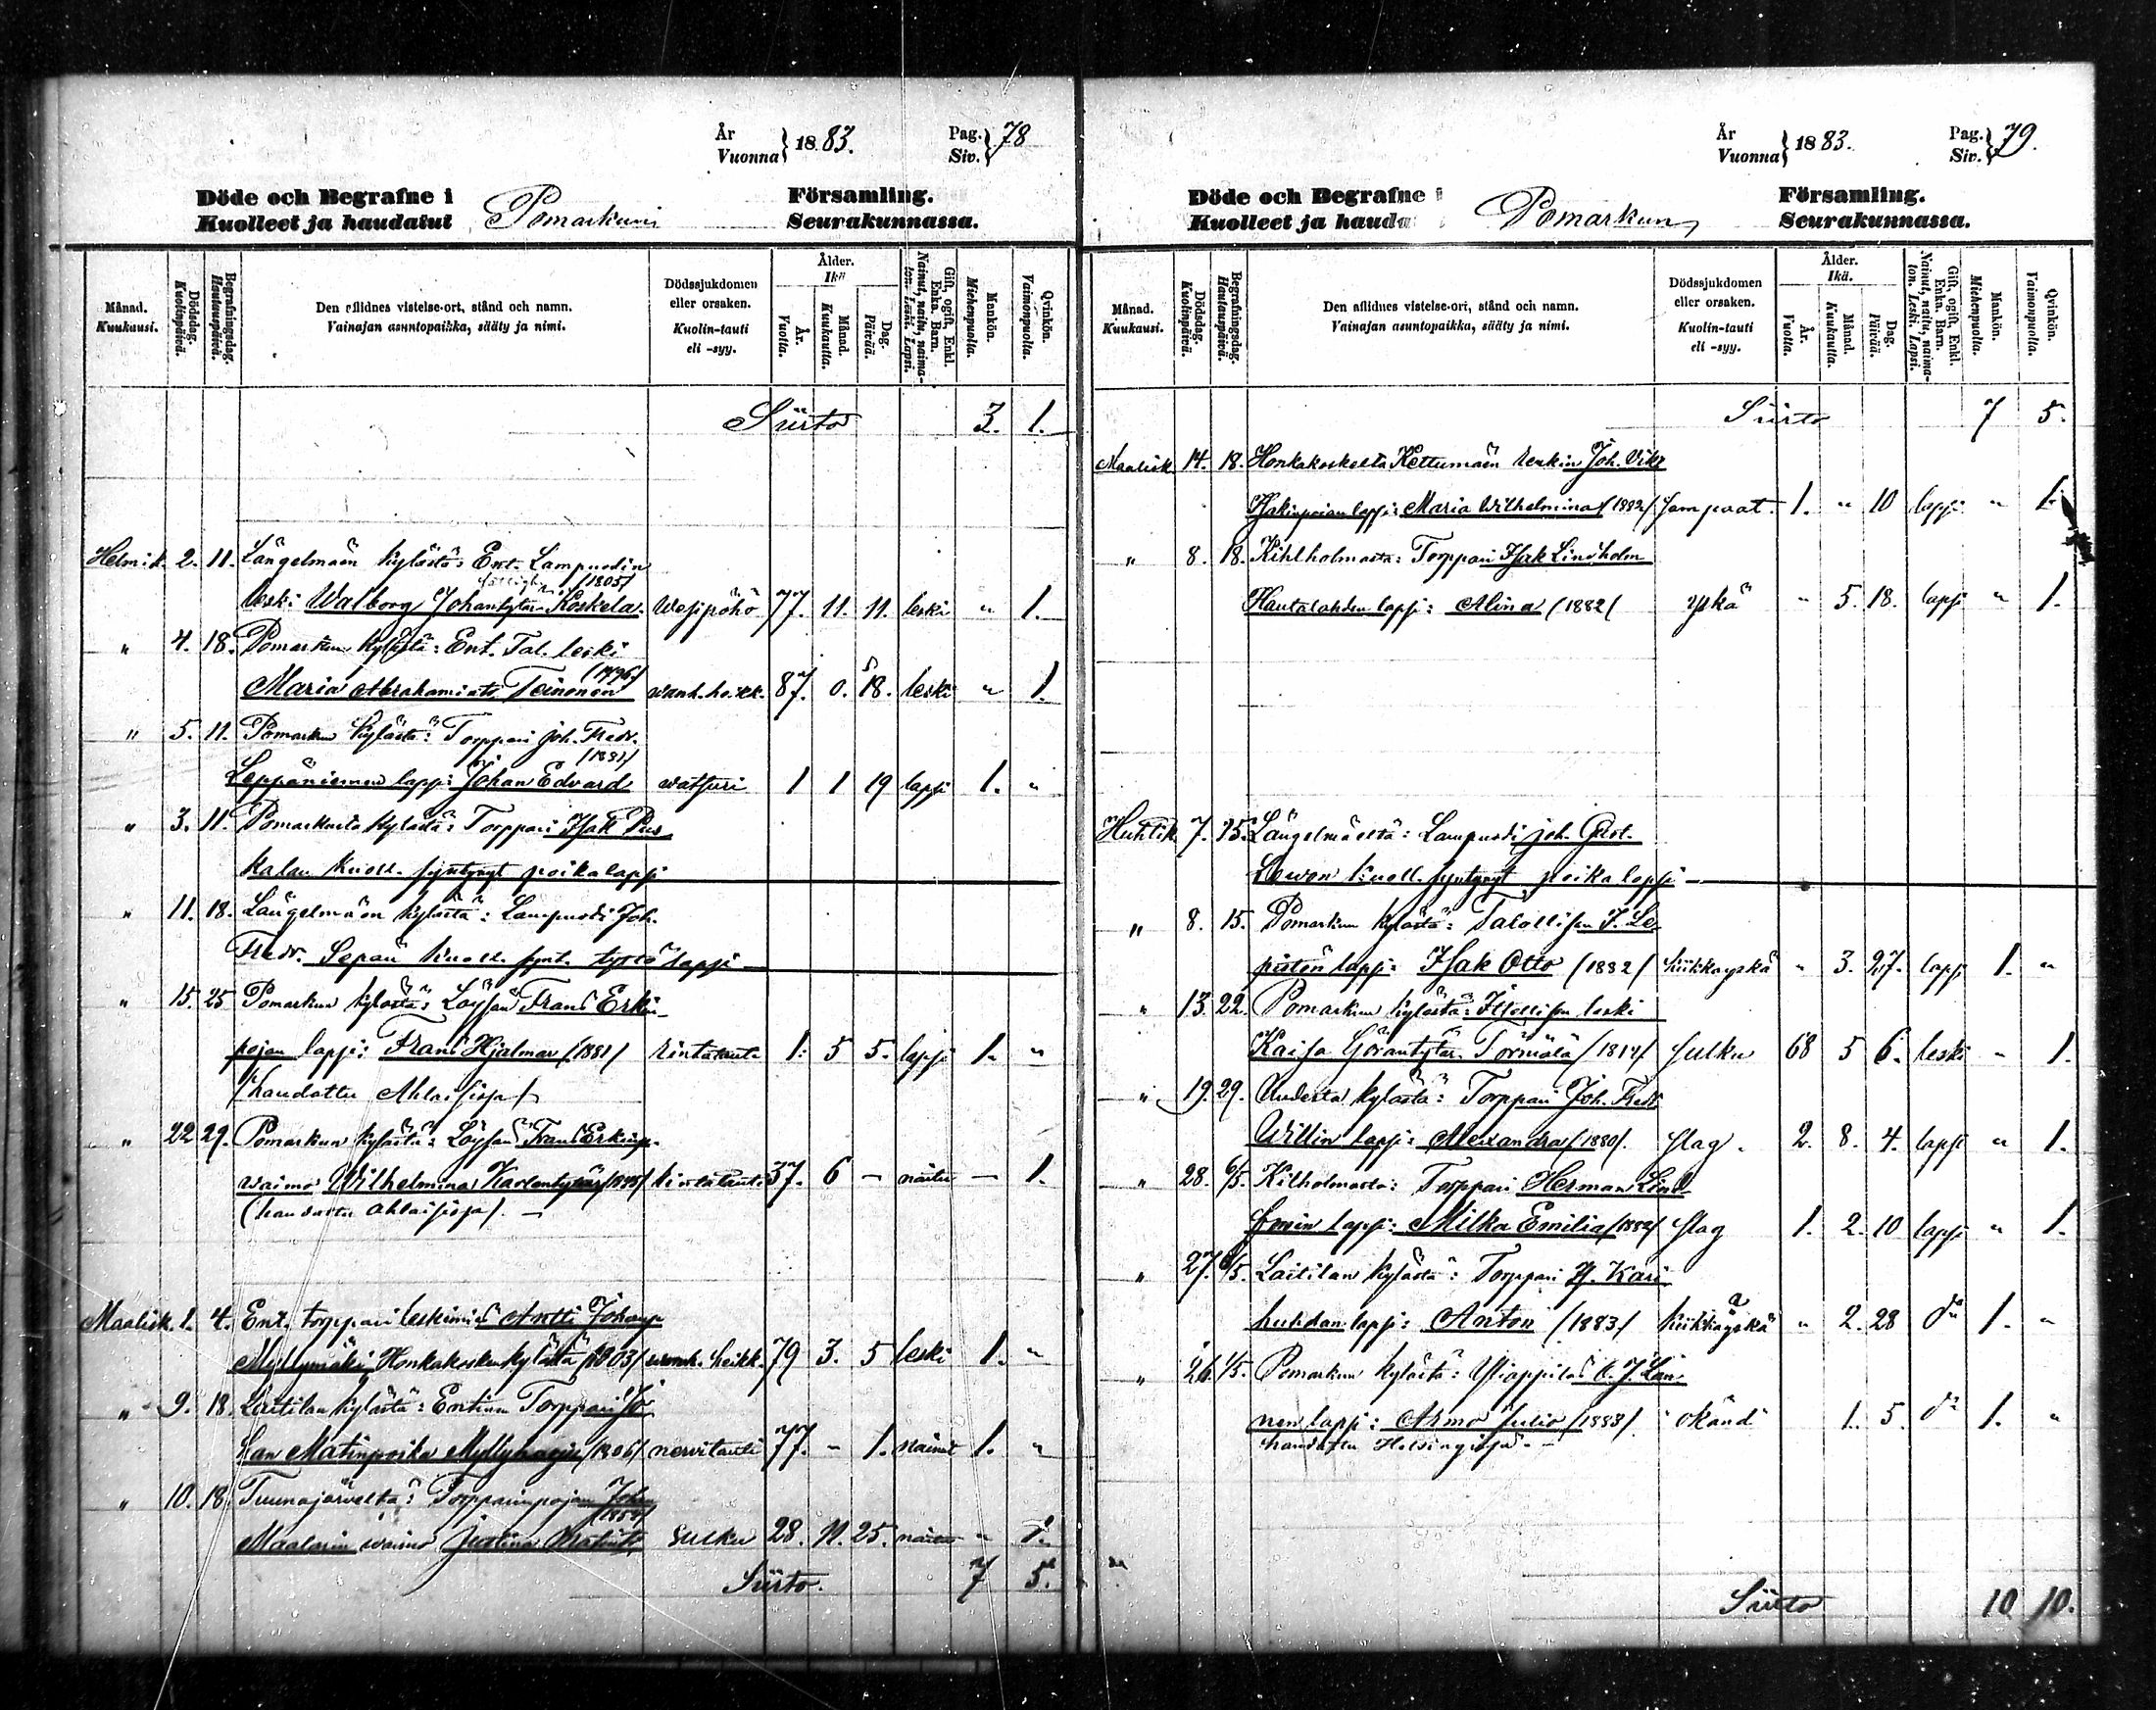 År
Vuonna } 1883.
Pag.
Siv. } 78
Döde och Begrafne i Församling.
Kuolleet ja haudatut Pomarkun Seurakunnassa.
Månad. Kuukausi.
Dödsdag. Kuolinpäivä.
Begrafningsdag. Hautauspäivä.
Den aflidnes vistelse-ort, stånd och namn.
Vainajan asuntopaikka, sääty ja nimi.
Dödssjukdomen eller orsaken.
Kuolin-tauti eli -syy.
Ålder. Ikä
År. Vuotta.
Månad. Kuukautta.
Dag. Päivää.
Gift, ogift, Enkl. Enka. Barn.
Nainut, naitu, naimaton. Leski. Lapsi.
Mankön. Miehenpuolta.
Qvinkön. Vaimonpuolta.
Siirto 3. 1.
Helmik. 2. 11. Längelmäen kylästä: Ent. Lampuodin
(1805)
leski Walborg Johantytär Koskela. Wesipöhö 77. 11. 11. leski " 1.
" 4. 18. Pomarkun kylästä: Ent. Tal. leski
(1796)
Maria Abrahamint. Teinonen wanh. heikk. 87. 0. 18. leski " 1.
" 5. 11. Pomarkun kylästä: Torppari Joh. Fredr.
(1881)
Leppäniemen lapsi Johan Edvard watsuri 1 1 19 lapsi 1. "
" 3. 11. Pomarkusta kylästä: Torppari Isak Pus
kalan kuoll. syntynyt poikalapsi
" 11. 18. Längelmäen kylästä: Lampuodi Joh.
Fredr. Sepän kuoll. synt. tyttölapsi
" 15. 25 Pomarkun kylästä: Löysän Frans Erkin
pojan lapsi: Frans Hjalmar (1881) rintatauti 1. 5 5. lapsi 1. "
(haudattu Ahlaisissa)
" 22 29. Pomarkun kylästä: Löysän Frans Erkinp.
waimo Wilhelmina Karlentytär (1845) rintatauti 37. 6 – naitu – 1.
(haudattu Ahlaisissa). –
Maalisk. 1. 4. Ent. torppari leskimies Antti Johanp
Myllymäki Honkakosken kylästä (1803) wanh. heikk. 79 3. 5 leski 1. "
" 9. 18. Laitilan kylästä: Entinen Torppari Jo
han Matinpoika Myllyharju (1806) nervitauti 77. – 1. nainut 1. "
" 10. 18. Tuunajärveltä: Torpparinpojan Johan
Maalarin waimo Justina Matint. Sulku 28. 11. 25. naitu " 1.
Siirto. 7 5.
År
Vuonna } 1883.
Pag.
Siv. } 79.
Döde och Begrafne i Församling.
Kuolleet ja hauda Pomarkun Seurakunnassa.
Månad. Kuukausi.
Dödsdag. Kuolinpäivä.
Begrafningsdag. Hautauspäivä.
Den aflidnes vistelse-ort, stånd och namn.
Vainajan asuntopaikka, sääty ja nimi.
Dödssjukdomen eller orsaken.
Kuolin-tauti eli -syy.
Ålder. Ikä.
År. Vuotta.
Månad. Kuukautta.
Dag. Päivää.
Gift, ogift, Enkl. Enka. Barn.
Nainut, naitu, naimaton. Leski. Lapsi.
Mankön. Miehenpuolta.
Qvinkön. Vaimonpuolta.
Siirto 7 5.
Maalisk 14. 18. Honkakoskelta Kettumäen renkin Joh. Vikt
Isakinpoian lapsi: Maria Wilhelmina (1882) 1. " 10 lapsi " 1.
" 8. 18. Kihlholmasta: Torppari Isak Lindholm
Hautalahden lapsi: Alina (1882) yskä " 5. 18. lapsi " 1.
Huhtik 7. 15. Längelmäeltä: Lampuodi Joh. Gust.
Lewon kuoll. syntynyt poika lapsi –
" 8. 15. Pomarkun kylästä: Talollisen J. Le
pistön lapsi: Isak Otto (1882) hiikkayskä " 3. 27. lapsi 1. "
" 13. 22. Pomarkun kylästä: Itsellisen leski
Kaisa Göräntytär Törmälä (1814) Sulku 68 5 6. leski " 1.
" 19. 29. Uudesta kylästä: Torppari Joh. Fredr
Willin lapsi: Alexandra (1880). slag. 2. 8. 4. lapsi " 1.
" 28. 6/5. Kilholmasta: Torppari Herman Lind
lapsi: Milka Emilia (1882) slag 1. 2. 10 lapsi " 1.
" 27. 6/5. Laitilan kylästä: Torppari Kari
huhdan lapsi: Anton (1883) hiikkayskä " 2. 28 d:o 1. "
" 26. 1/5. Pomarkun kylästä: J. Lin
nen lapsi: Armo Julio (1883). okänd 1. 5. d:o 1. "
haudattu Helsingissä. –
Siirto 10 10.